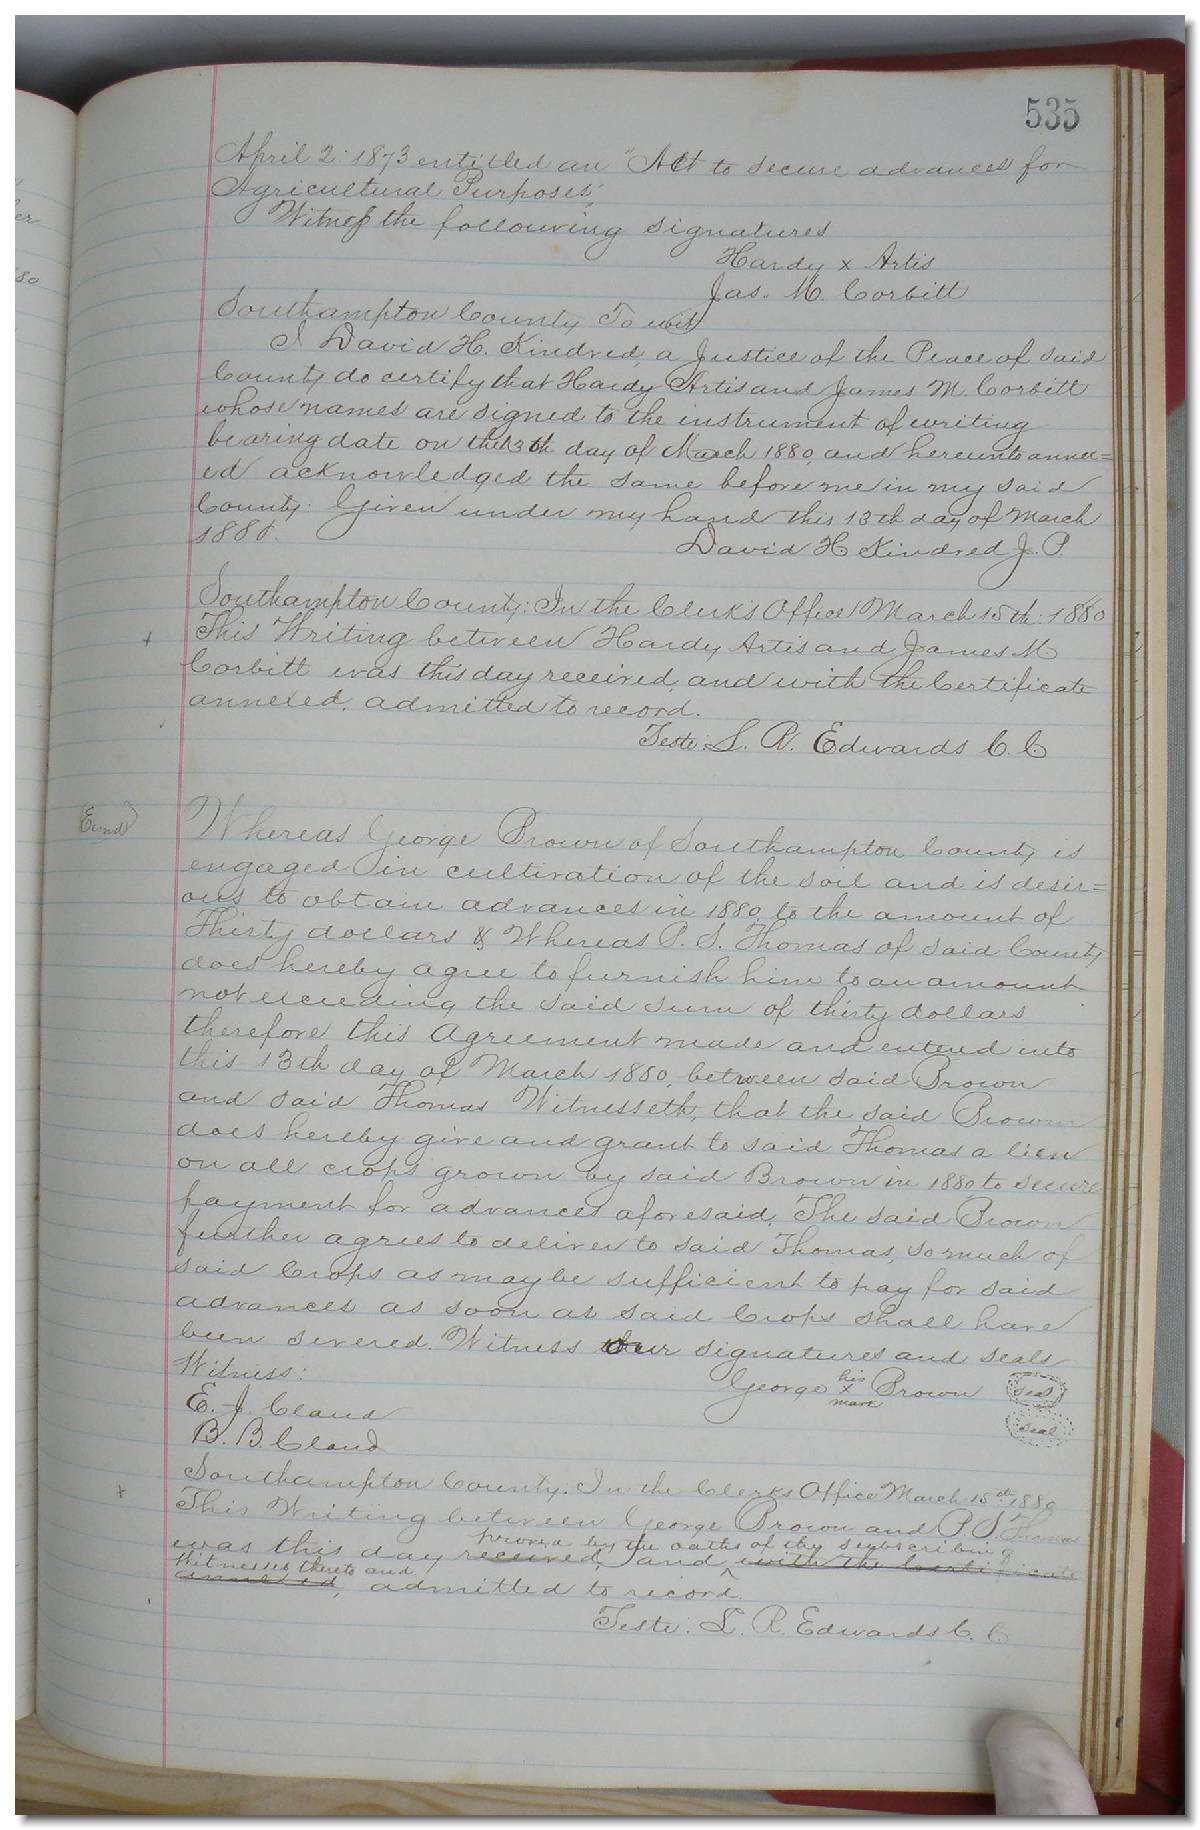 535
April 2: 1873 entitled an "Act to secure advances for
Agricultural Purposes;"
Witness the following signatures
Hardy x Artis
Jas. M. Corbitt
Southampton County To wit
I David H. Kindred, a Justice of the Peace of said
County do certify that Hardy Artis and James M. Corbitt
whose names are signed to the instrument of writing
bearing date on the 13th day of March 1880, and hereunto annex=
ed acknowledged the same before me in my said
County: Given under my hand this 13th day of March
1880.
David H Kindred J. P.
Southampton County: In the Clerk's Office March 15th: 1880
This Writing between Hardy Artis and James M
Corbitt was this day received, and with the Certificate
annexed, admitted to record.
Teste: L. R. Edwards C. C.
Whereas George Brown of Southampton County is
engaged in cultivation of the soil and is desir=
ous to obtain advances in 1880, to the amount of
Thirty dollars & Whereas P. S. Thomas of said County
does hereby agree to furnish him to an amount
not exceeding the said sum of thirty dollars
therefore this Agreement made and entered into
this 13th day of March 1880, between said Brown
and said Thomas Witnesseth, that the said Brown
does hereby give and grant to said Thomas a lien
on all crops grown by said Brown in 1880 to secure
payment for advances aforesaid. The said Brown
further agrees to deliver to said Thomas, so much of
said Crops as may be sufficient to pay for said
advances as soon as said Crops shall have
been severed. Witness our signatures and seals
Witness:
George his x mark Brown seal
E. J. Claud
seal
B. B. Claud
Southampton County: In the Clerks Office March 15th: 1880
This Writing between George Brown and P. S. Thomas
proven by the oaths of the subscribing
was this day received, and with the Certificate
Witnesses thereto and
annexed, admitted to record
Teste: L. R. Edwards C. C.